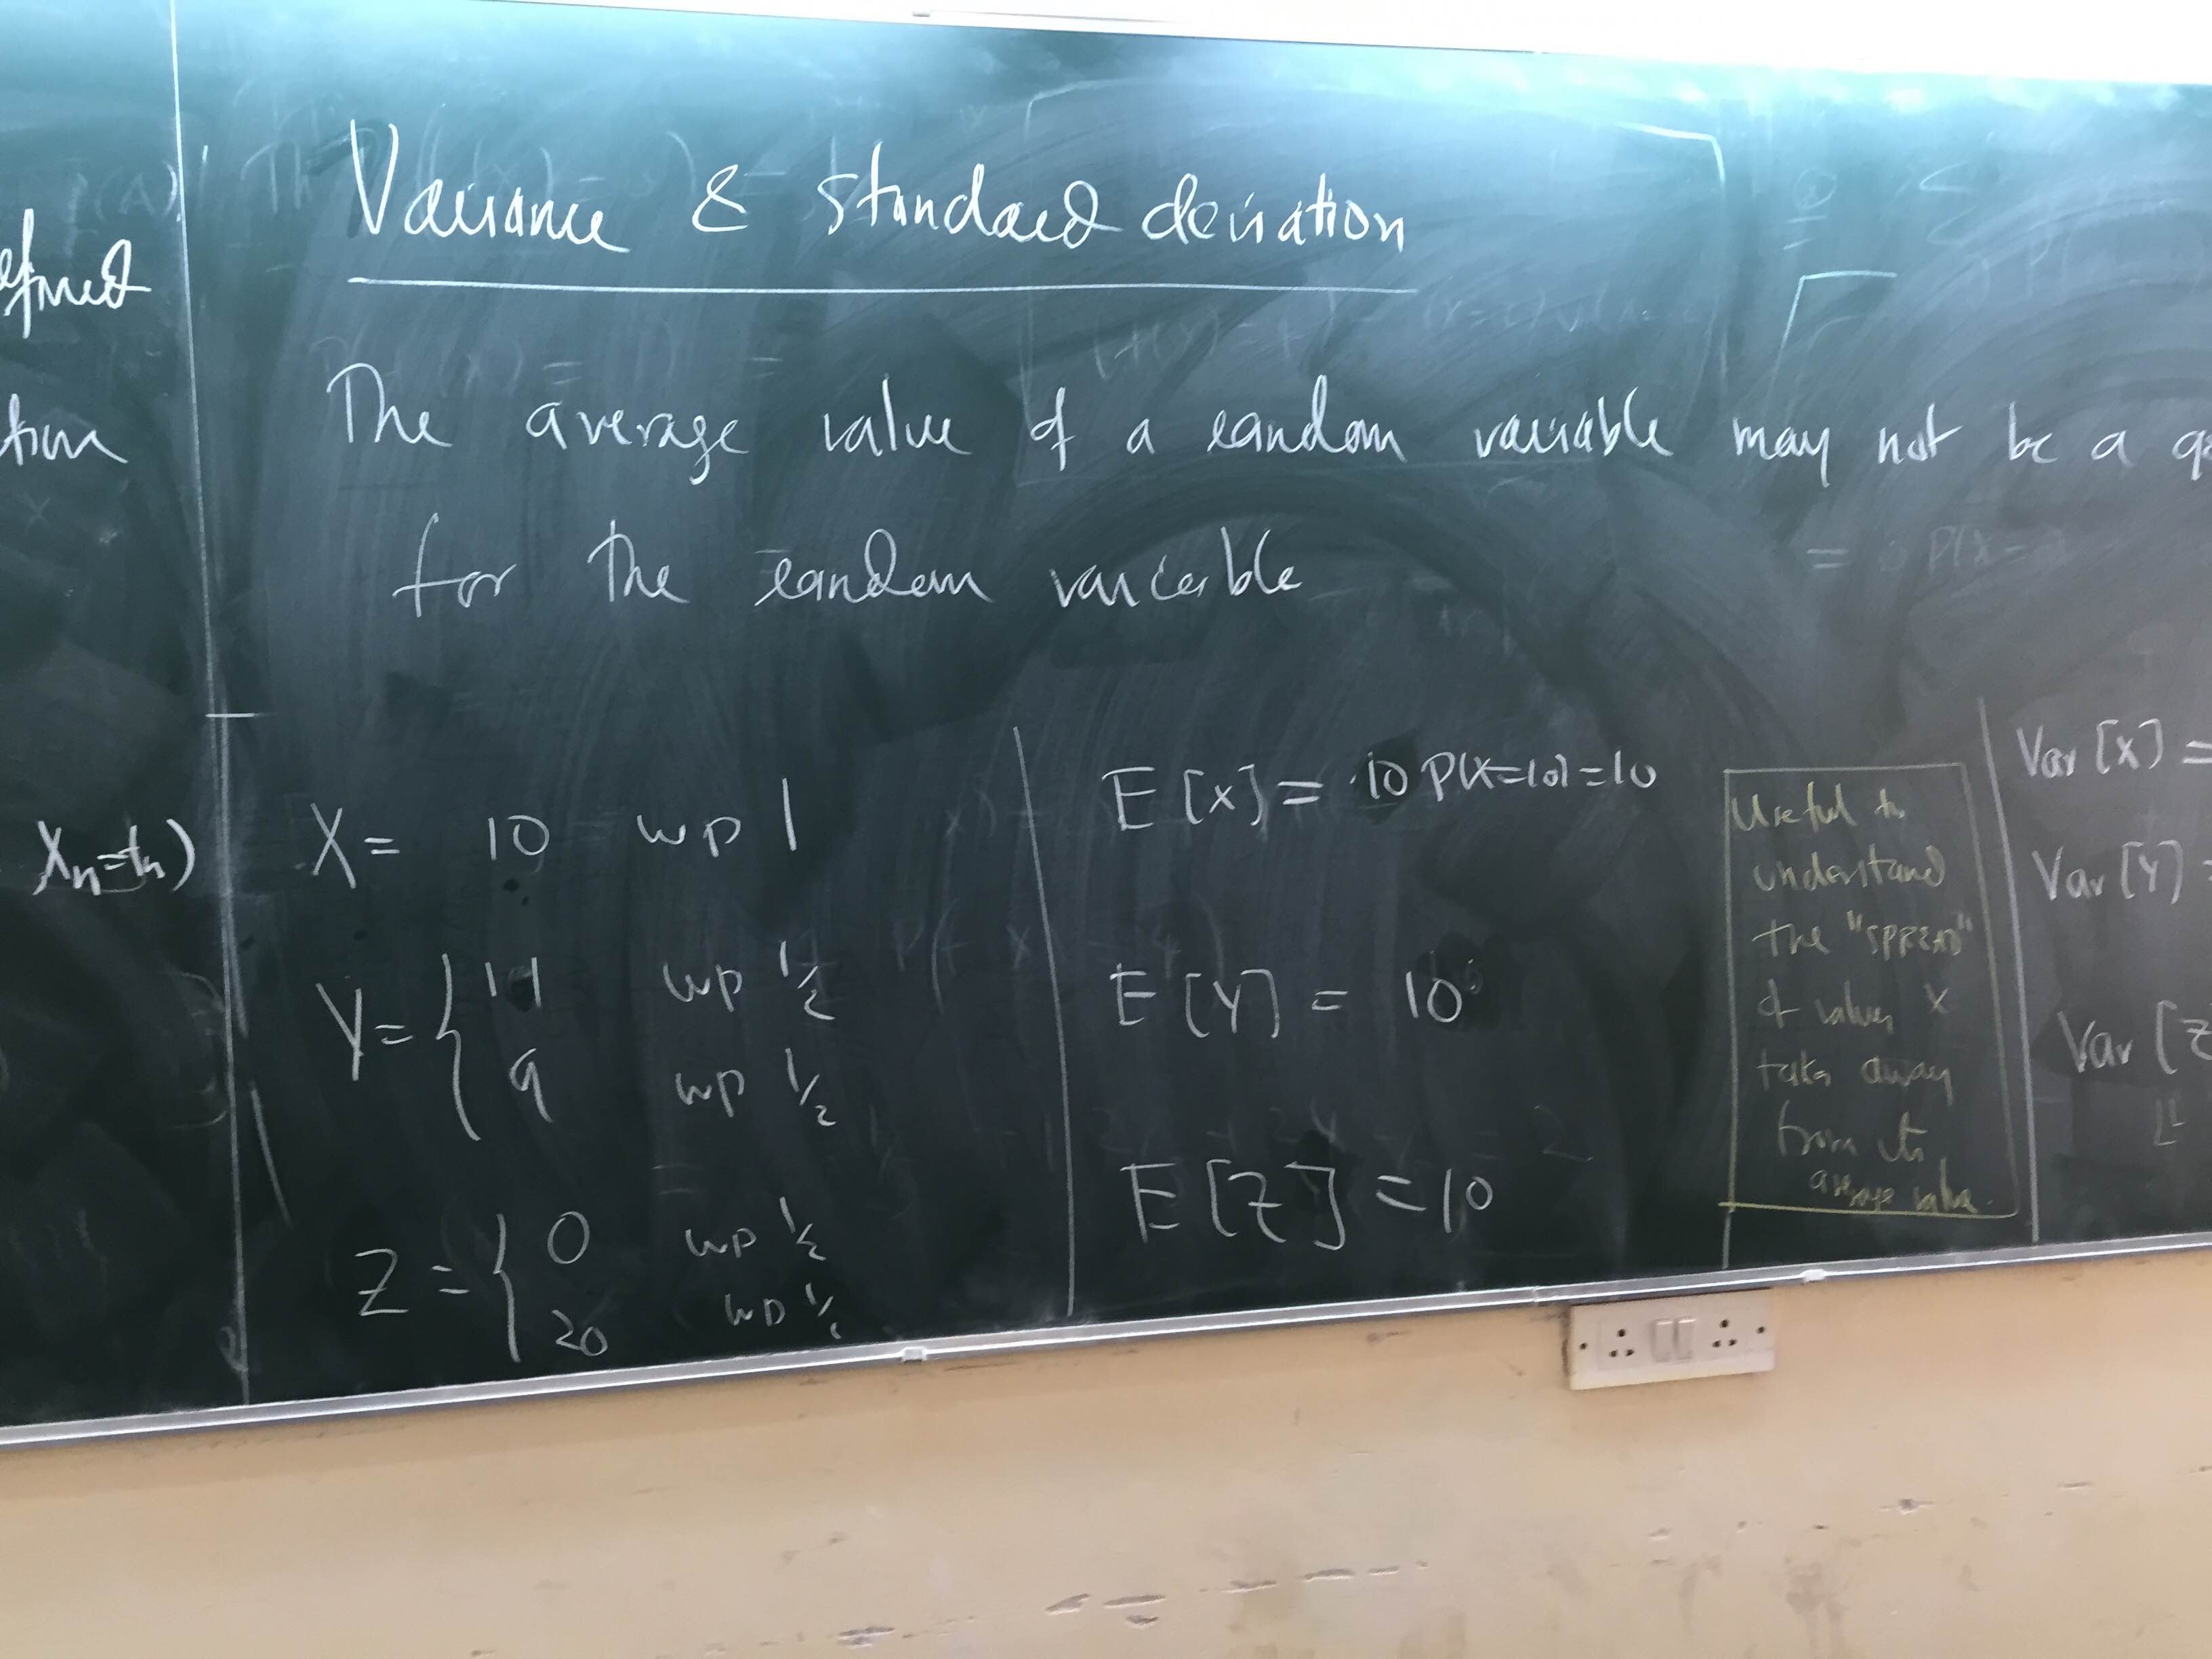 Variance & standard deviation
The average value of a random variable may not be a
for the random variable
X = 10 wp 1
Y = { 11 wp 1/2
9 wp 1/2
Z = { 0 wp 1/2
20 wp 1/2
E[X] = 10 P(X=10) = 10
E[Y] = 10
E[Z] = 10
Useful to
understand
the "SPREAD"
of values X
takes away
from its
average value.
Var[X] =
Var[Y] =
Var[Z
Xn=tn)